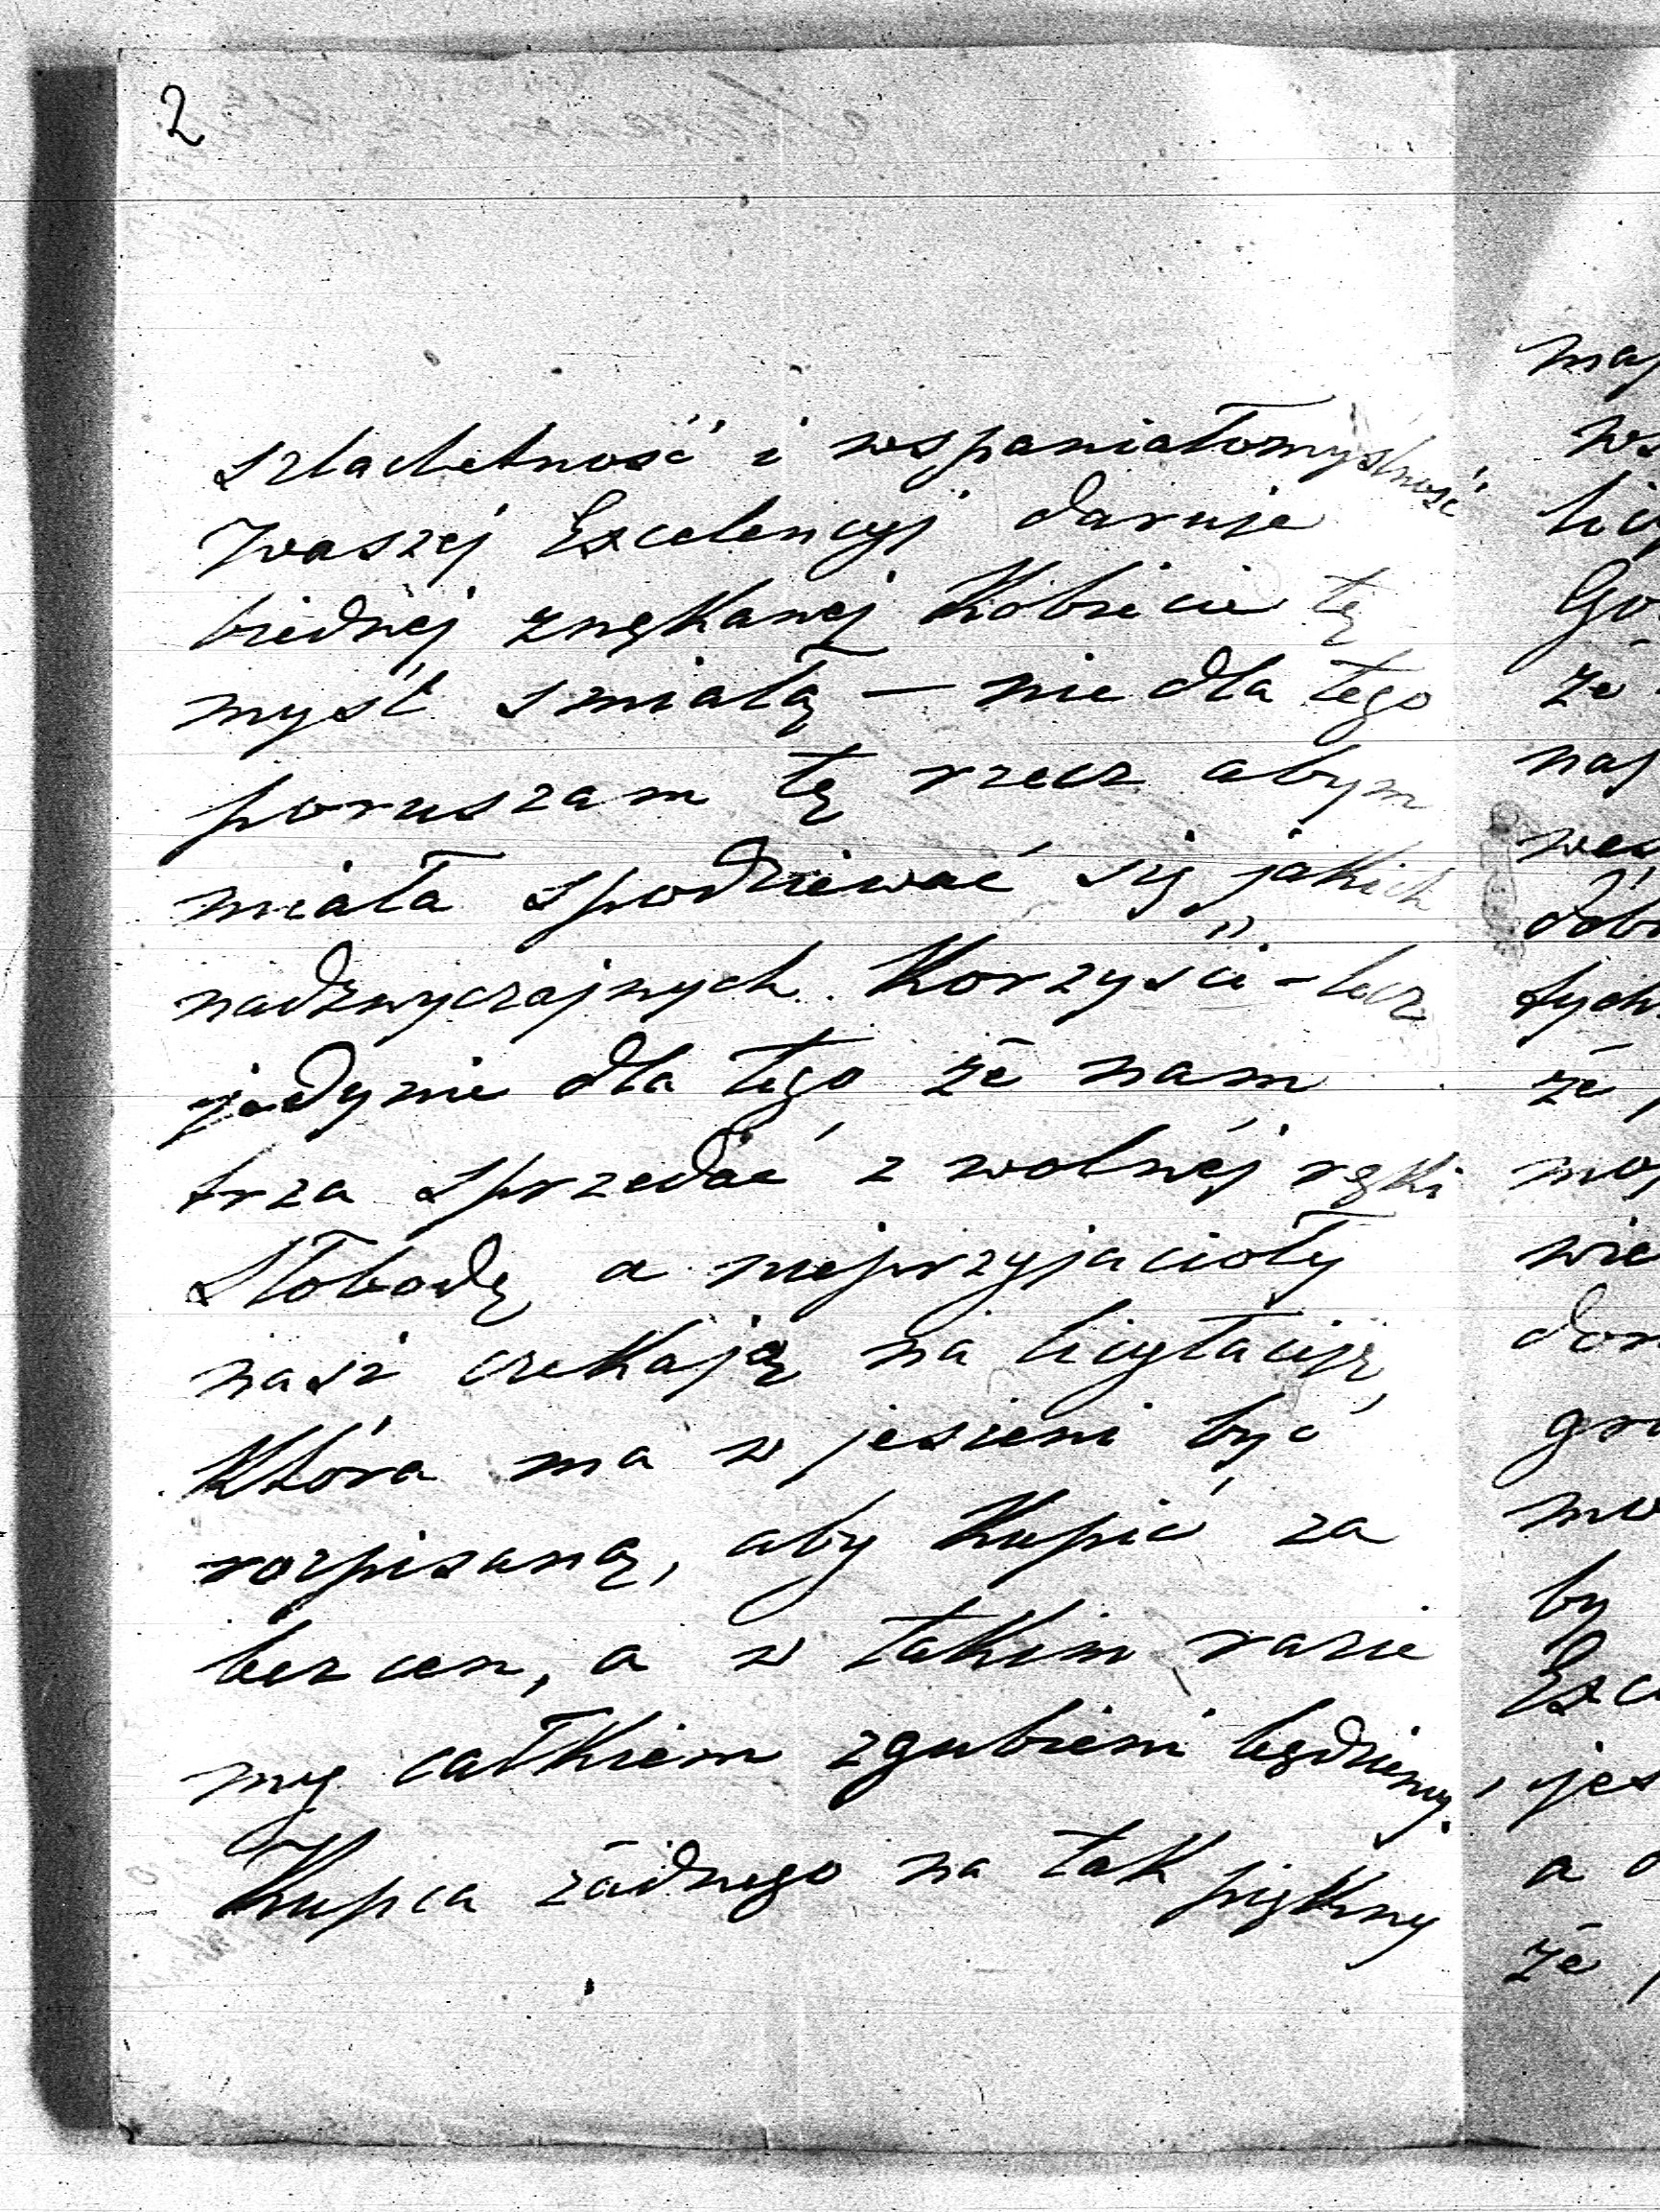 2
szlachetność i wspaniałomyślność
Waszej Excelencyj daruje
biednéj znękanej Kobiecie tę
myśl smiałą — nie dla tego
poruszam tę rzecz abym
miała spodziewać się jakich
nadzwyczajnych Korzyści - lecz
jedynie dla tego że nam
trza sprzedać z wolnéj ręki
Słobodę a nieprzyjacioły
nasi czekają na licytacije,
Która ma w jesieni być
rozpisaną, aby Kupić za
bezcen, a w takim razie
my całkiem zgubieni będziemy.
Kupca żadnego na tak piękny
maj
ws
licy
Go
że
naj
wes
dob
tych
że
moj
wie
dom
gro
mo
by
Exc
, jes
a
że